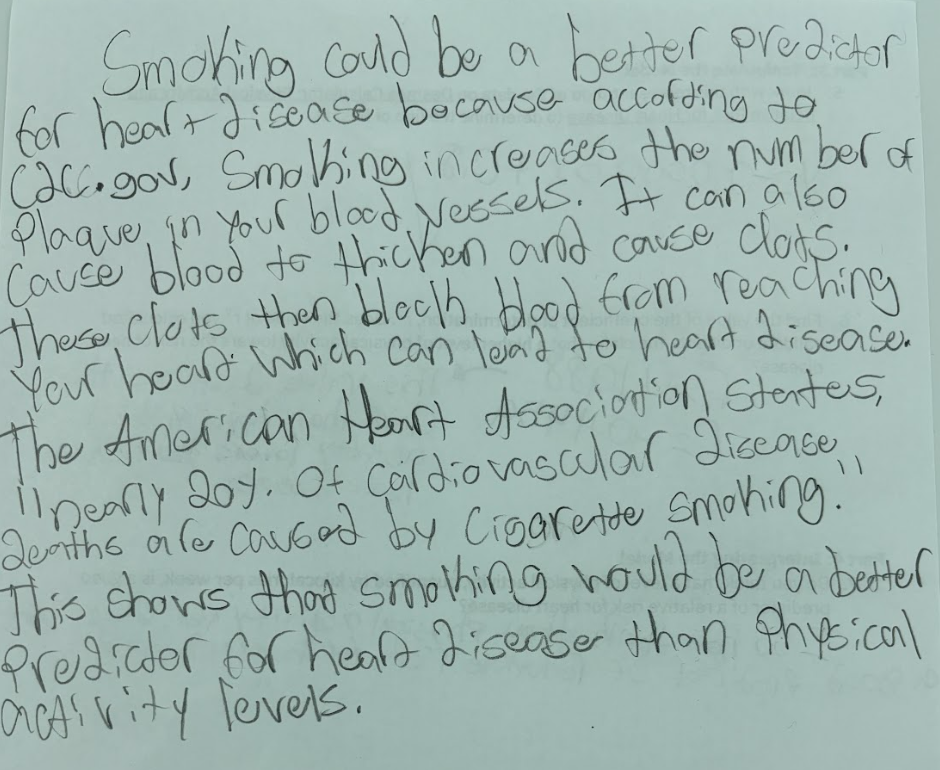 Smoking could be a better predictor
for heart disease because according to
cdcc.gov, Smoking increases the number of
Plaque in your blood vessels. It can also
Cause blood to thicken and cause clots.
These Clots then block blood from reaching
Your heart which can lead to heart disease.
The American Heart Association states,
"nearly 20%. Of cardiovascular disease
deaths are caused by Cigarette smoking."
This shows that smoking would be a better
Predicter for heart disease than Physical
activity levels.